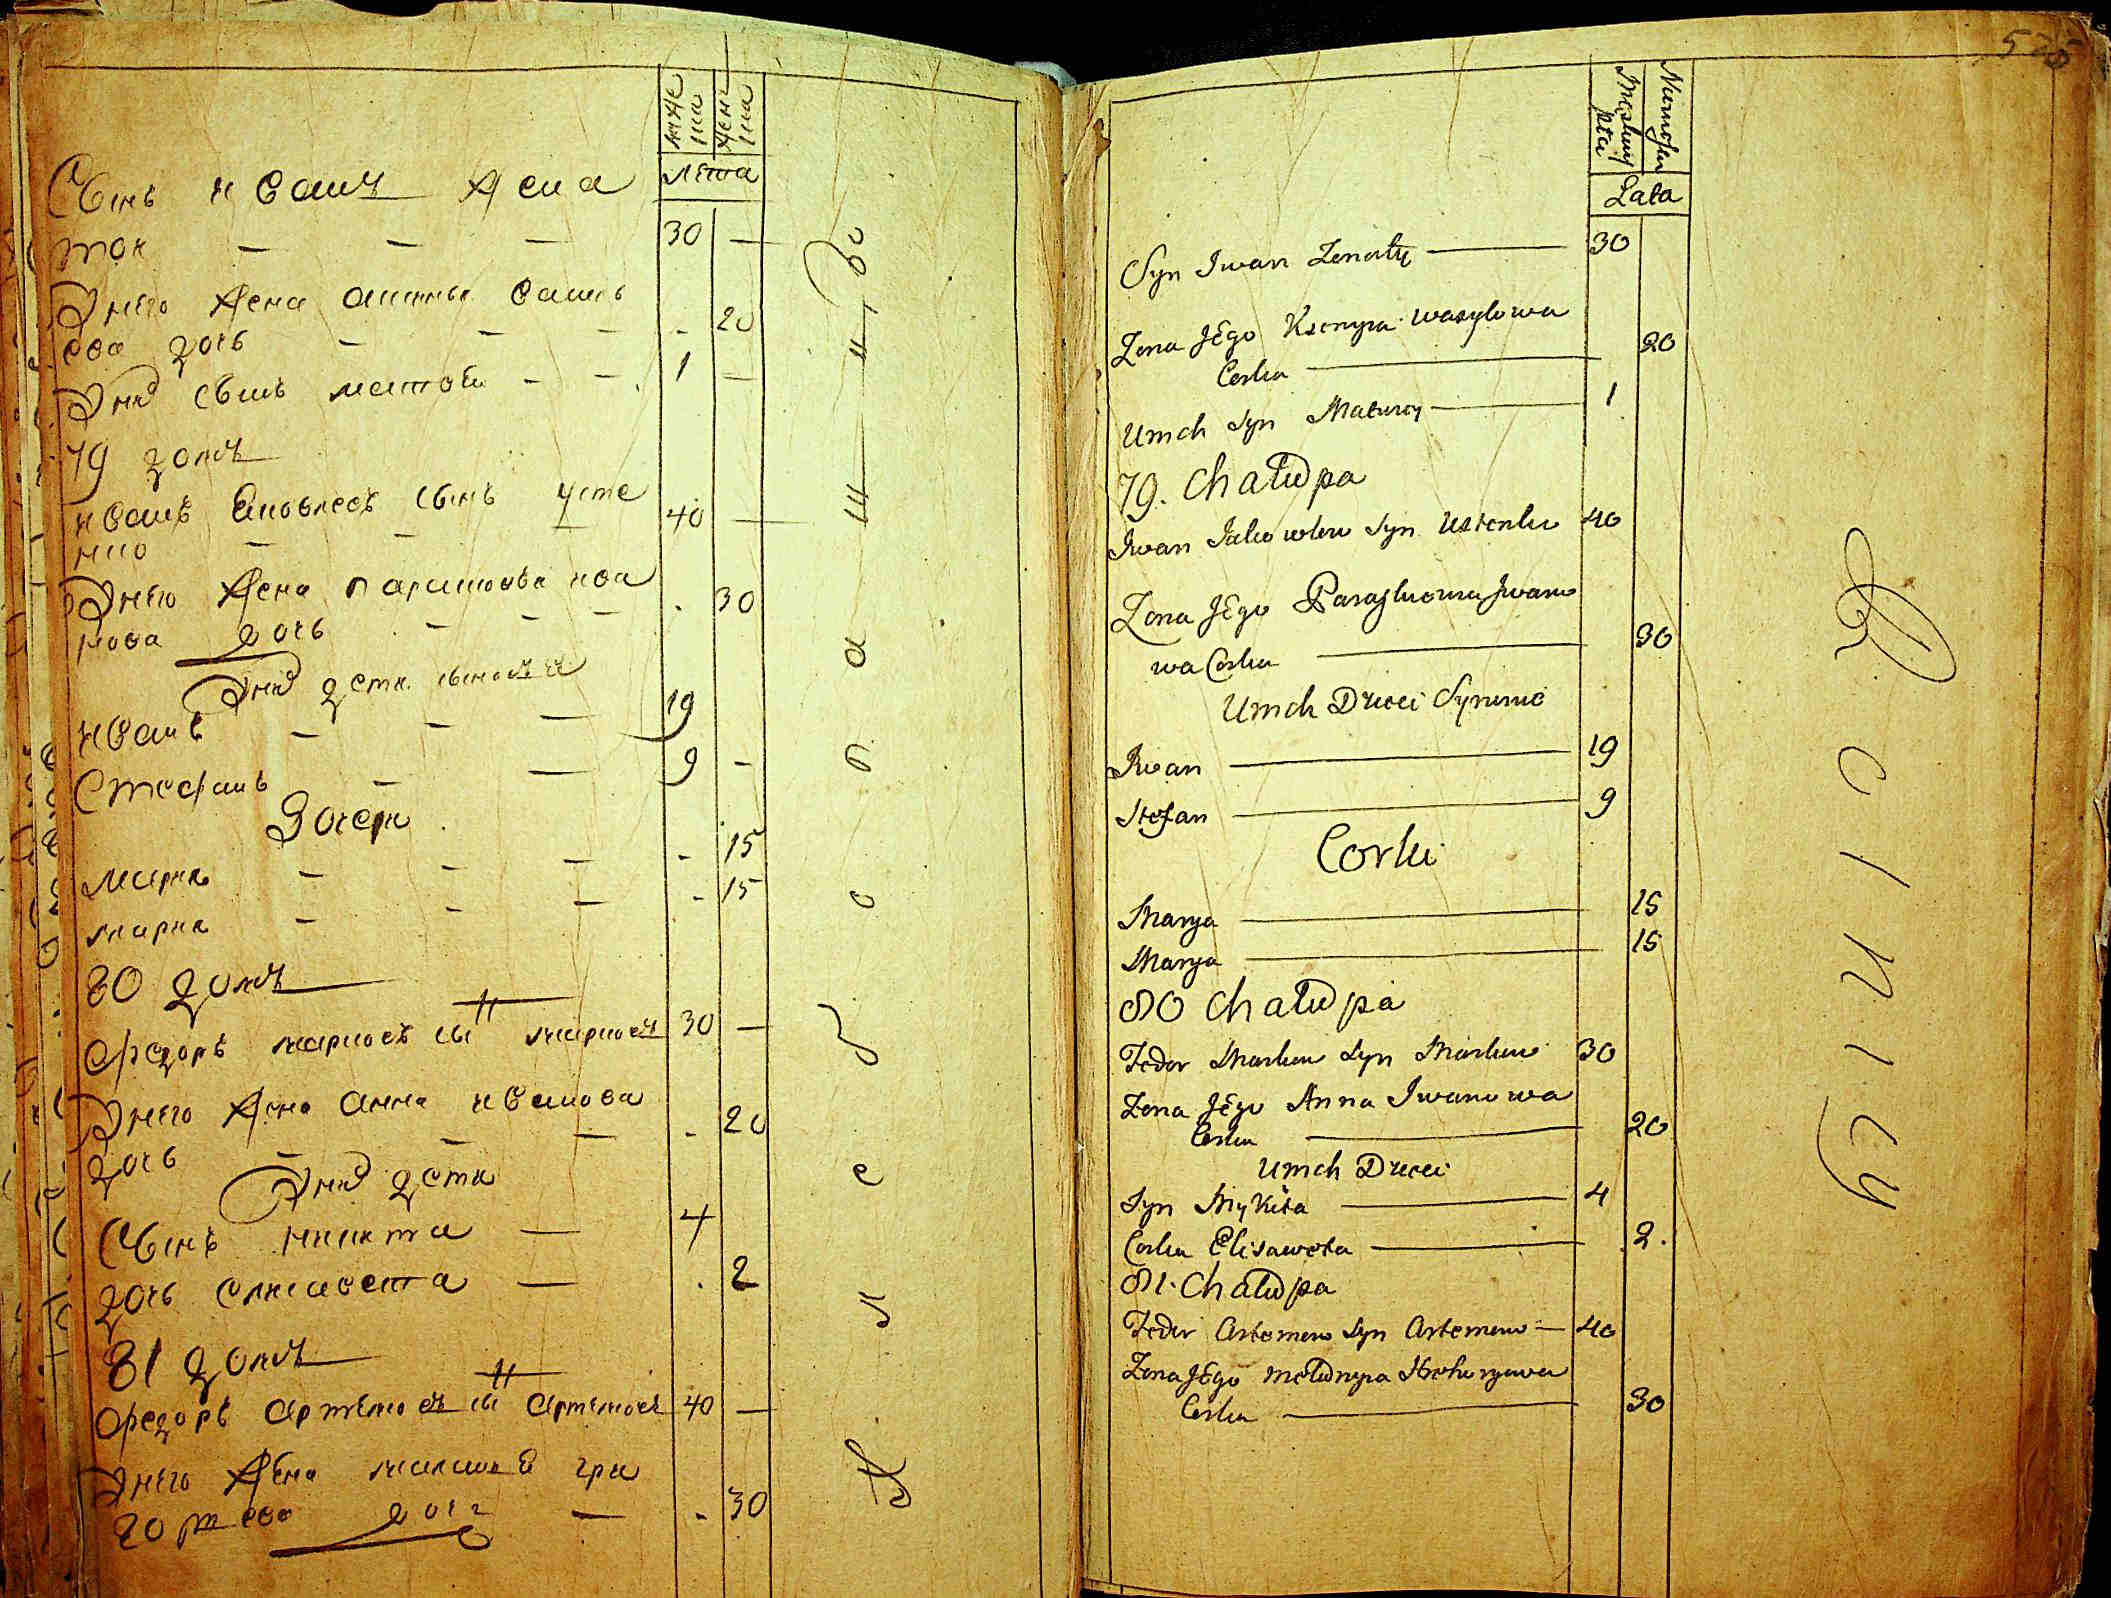 муже
ска
женс
ска
лета
Сынъ иванъ жена
тои — — — 30 —
Унего жена
ева дочь — — — - 20
Уних сынъ матвеи - - 1 —
79 домъ
иванъ Яковлевъ сынъ усте
нко — — — 40 —
Унего жена парасковья ива
нова дочь — — — . 30
Уних дети сыновей
иванъ — — — 19
Стефанъ — — 9 -
Дочери
марья — — — - 15
марья — — — - 15
80 домъ
Федоръ марковъ сы н марковъ 30 —
Унего жена анна иванова
дочь — — — - 20
Уних дети
Сынъ никита — 4
дочь елисавета — . 2
81 домъ
Федоръ артемовъ сы н артемовъ 40 —
Унего жена гри
горева дочь — - 30
Х л е б о п а ш ц
525
Męskiey
płci
Lata
Syn Iwan Zonaty — 30
Zona Jego Ksenyia Wasylowa
Corka — 20
Umch Syn Matwey — 1
79. Chałupa
Iwan Jakowlew Syn Ustenko 40
Zona Jego Paraskowia Iwano
wa Corka — 30
Umch Dzieci Synowie
Iwan — 19
Stefan — 9
Corki
Marya — 15
Marya — 15
80 Chałupa
Fedor Markow Syn Markow 30
Zona Jego Anna Iwanowa
Corka — 20
Umch Dzieci
Syn Mykita — 4
Corka Elisaweta — 2.
81. Chałupa
Fedor Artemow Syn Artemow — 40
Zona Jego Hrehoryewa
Corka — 30
R o l n i c y